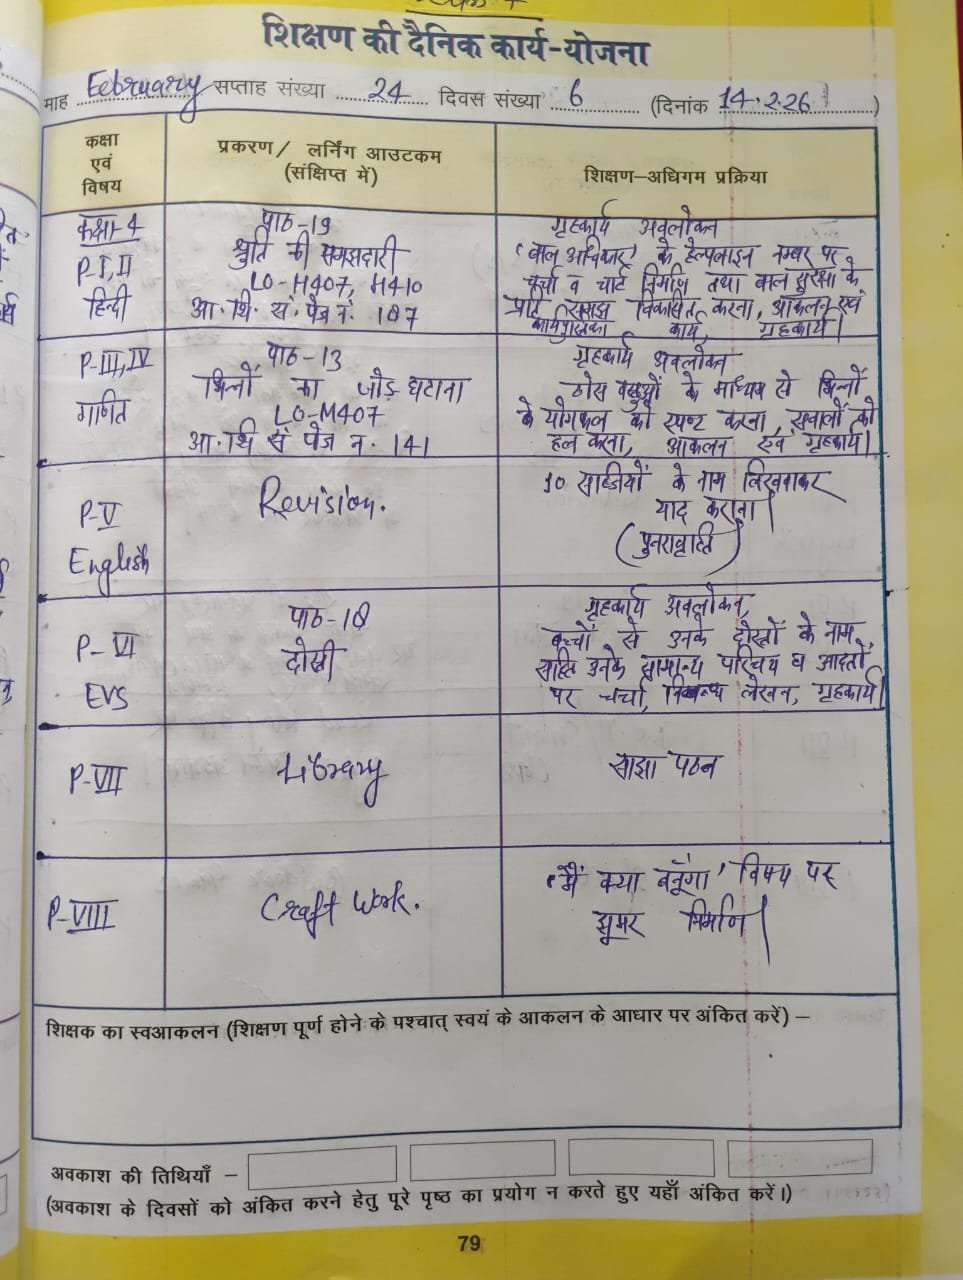 शिक्षण की दैनिक कार्य-योजना
माह February सप्ताह संख्या 24 दिवस संख्या 6 (दिनांक 14.2.26)
कक्षा एवं विषय
प्रकरण/ लर्निंग आउटकम (संक्षिप्त में)
शिक्षण–अधिगम प्रक्रिया
कक्षा-4
P-I, II
हिन्दी
पाठ-19
श्रुति की समझदारी
LO-H407, H410
आ. शि. सं. पेज नं. 107
गृहकार्य अवलोकन
'बाल अधिकार' के हेल्पलाइन नम्बर पर
चर्चा व चार्ट निर्माण तथा बाल सुरक्षा के
प्रति समझ विकसित करना, आकलन एवं
कार्यपुस्तिका कार्य, गृहकार्य।
P-III, IV
गणित
पाठ-13
भिन्नों का जोड़ घटाना
LO-M407
आ. शि सं पेज न. 141
गृहकार्य अवलोकन
ठोस वस्तुओं के माध्यम से भिन्नों
के योगफल को स्पष्ट करना, सवालों को
हल करना, आकलन एवं गृहकार्य।
P-V
English
Revision.
10 सब्जियों के नाम लिखवाकर
याद कराना।
(पुनरावृत्ति)
P-VI
EVS
पाठ-18
दोस्ती
गृहकार्य अवलोकन,
बच्चों से उनके दोस्तों के नाम
सहित उनके सामान्य परिचय व आदतों
पर चर्चा, निबन्ध लेखन, गृहकार्य।
P-VII
Library
साझा पठन
P-VIII
Craft Work.
'मैं क्या बनूँगा' विषय पर
झूमर निर्माण।
शिक्षक का स्वआकलन (शिक्षण पूर्ण होने के पश्चात् स्वयं के आकलन के आधार पर अंकित करें) –
अवकाश की तिथियाँ –
(अवकाश के दिवसों को अंकित करने हेतु पूरे पृष्ठ का प्रयोग न करते हुए यहाँ अंकित करें।)
79